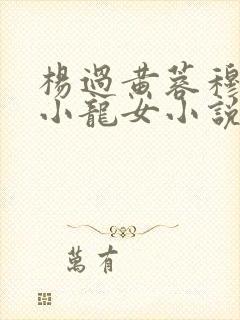 楊過黃蓉穆
小龍女小說
萬有